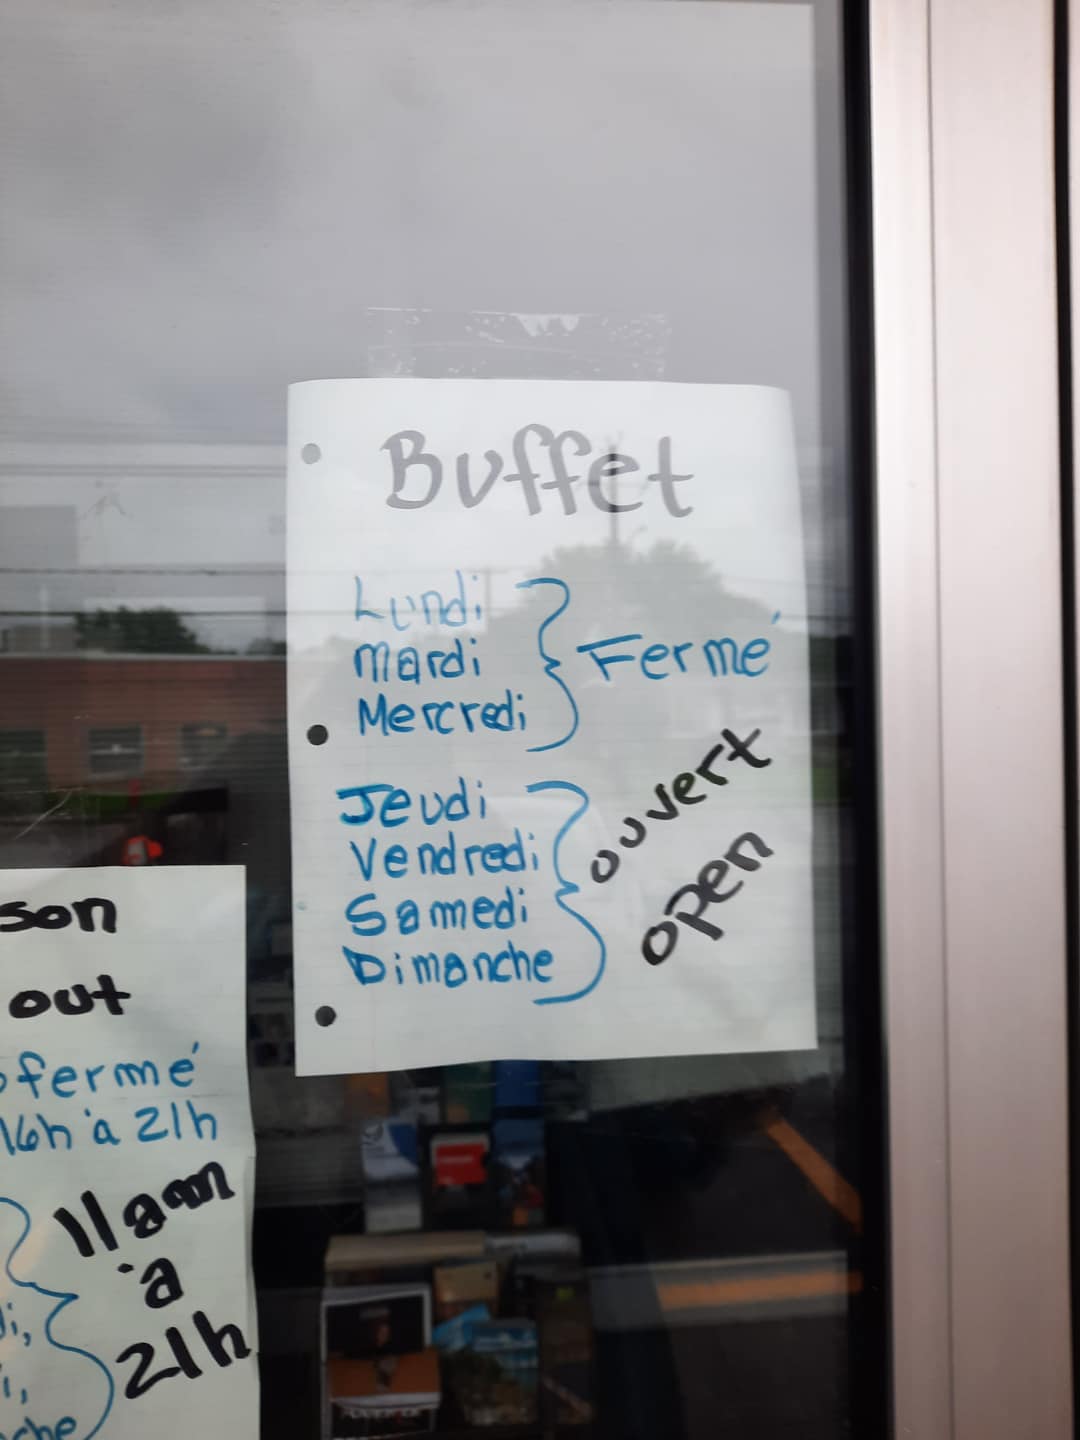 Buffet
Lundi
Mardi
Mercredi
Fermé
Jeudi
Vendredi
Samedi
Dimanche
ouvert
open
son
out
fermé
16h à 21h
11am
à
21h